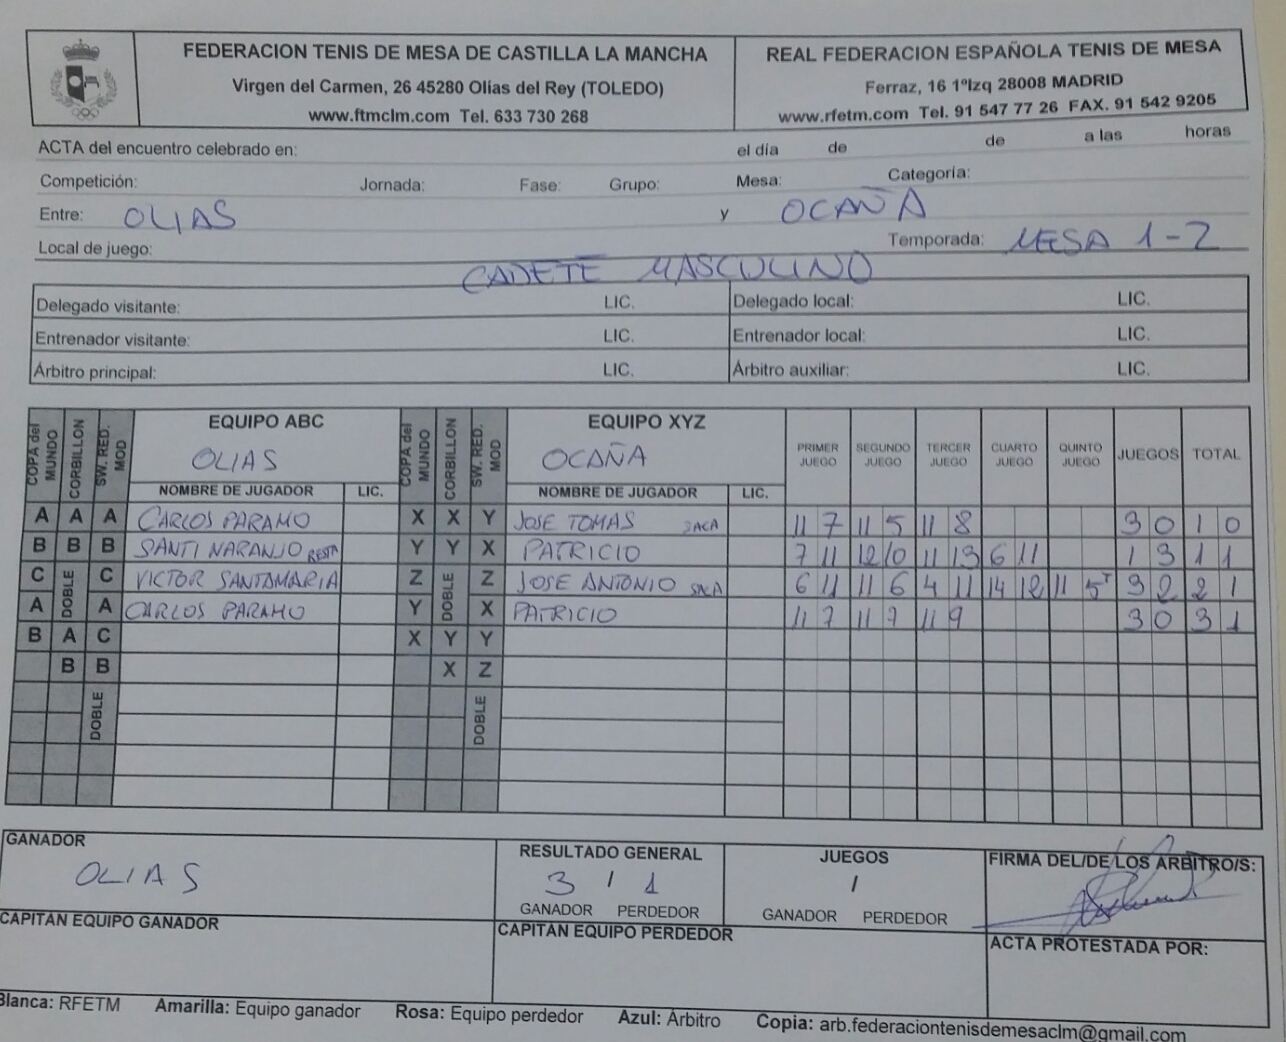 FEDERACION TENIS DE MESA DE CASTILLA LA MANCHA
Virgen del Carmen, 26 45280 Olias del Rey (TOLEDO)
www.ftmclm.com Tel. 633 730 268
REAL FEDERACION ESPAÑOLA TENIS DE MESA
Ferraz, 16 1ºIzq 28008 MADRID
www.rfetm.com Tel. 91 547 77 26 FAX. 91 542 9205
ACTA del encuentro celebrado en: el día de de a las horas
Competición: Jornada: Fase: Grupo: Mesa: Categoría:
Entre: OLIAS y OCAÑA
Local de juego: Temporada: MESA 1-2
CADETE MASCULINO
Delegado visitante: LIC. Delegado local: LIC.
Entrenador visitante: LIC. Entrenador local: LIC.
Árbitro principal: LIC. Árbitro auxiliar: LIC.
COPA del MUNDO CORBILLON SW. RED. MOD EQUIPO ABC OLIAS COPA del MUNDO CORBILLON SW. RED. MOD EQUIPO XYZ OCAÑA PRIMER JUEGO SEGUNDO JUEGO TERCER JUEGO CUARTO JUEGO QUINTO JUEGO JUEGOS TOTAL
NOMBRE DE JUGADOR LIC. NOMBRE DE JUGADOR LIC.
A A A CARLOS PARAMO X X Y JOSE TOMAS SACA 11 7 11 5 11 8 3 0 1 0
B B B SANTI NARANJO RESTA Y Y X PATRICIO 7 11 12 10 11 13 6 11 1 3 1 1
C DOBLE C VICTOR SANTAMARIA Z DOBLE Z JOSE ANTONIO SACA 6 11 11 6 4 11 14 12 11 5 3 2 2 1
A A CARLOS PARAMO Y X PATRICIO 11 7 11 7 11 9 3 0 3 1
B A C X Y Y
B B X Z
DOBLE DOBLE
GANADOR
OLIAS
RESULTADO GENERAL
3 / 1
GANADOR PERDEDOR
JUEGOS
/
GANADOR PERDEDOR
FIRMA DEL/DE LOS ARBITRO/S:
CAPITAN EQUIPO GANADOR
CAPITAN EQUIPO PERDEDOR
ACTA PROTESTADA POR:
Blanca: RFETM Amarilla: Equipo ganador Rosa: Equipo perdedor Azul: Árbitro Copia: arb.federaciontenisdemesaclm@gmail.com